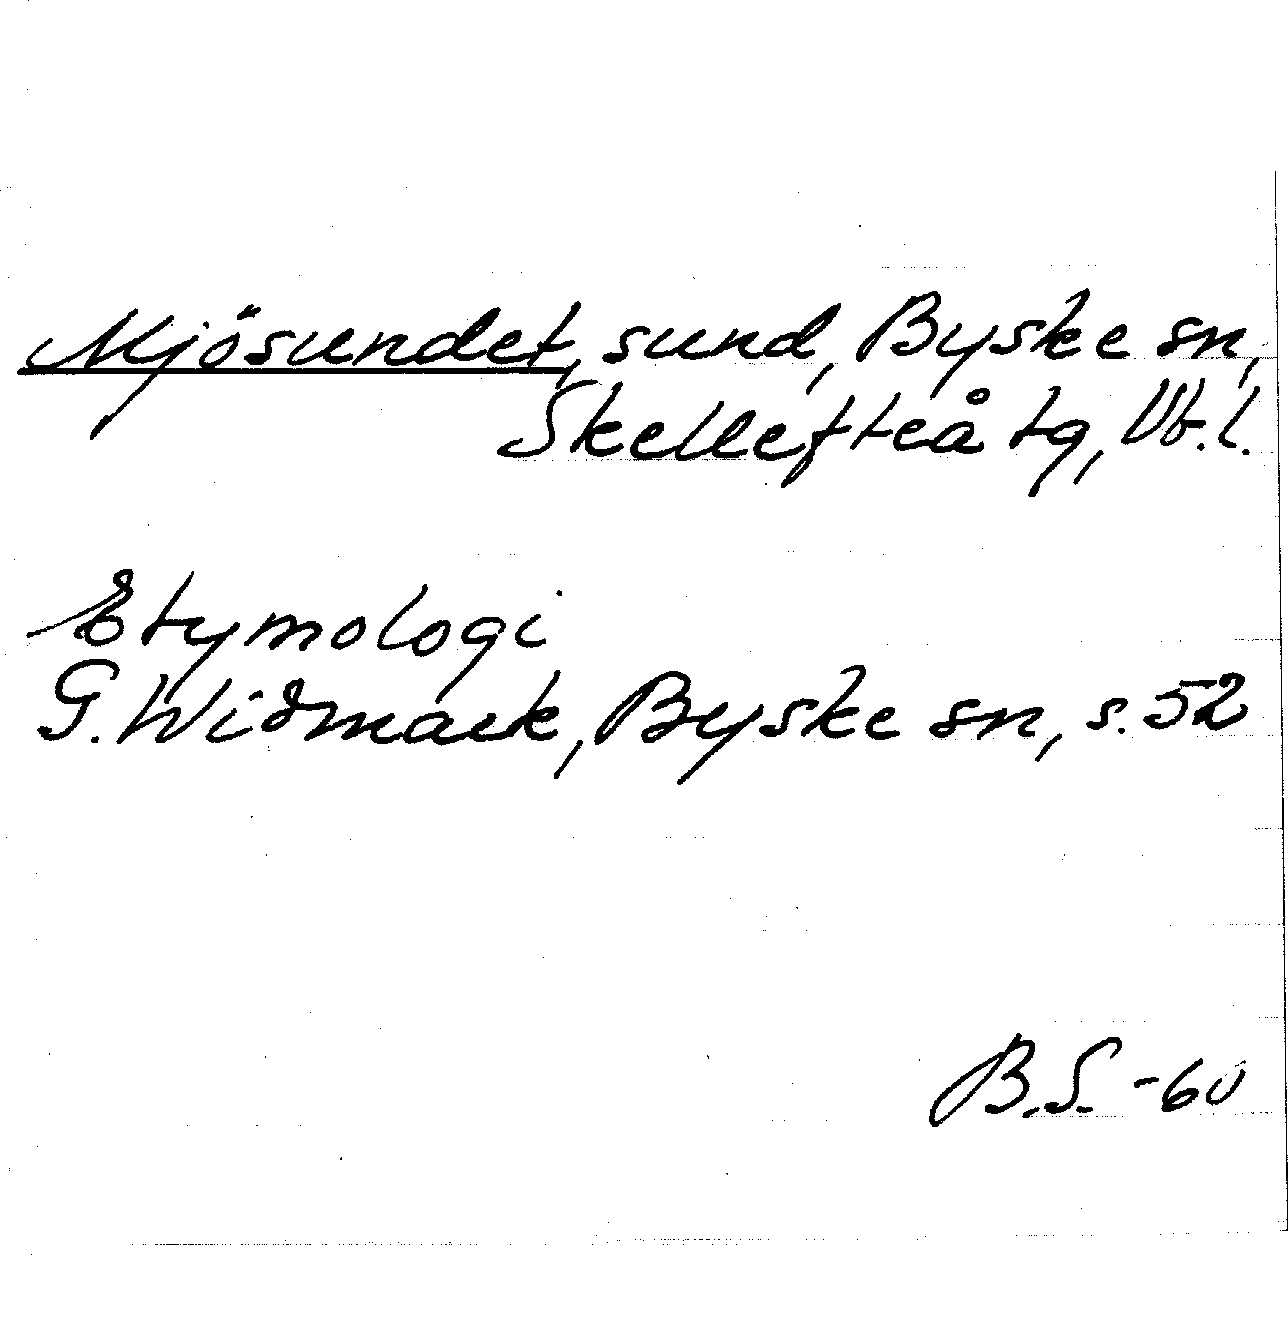 Mjösundet, sund, Byske sn,
Skellefteå tg, Vb.l.
Etymologi
G. Widmark, Byske sn, s. 52
B.S. -60